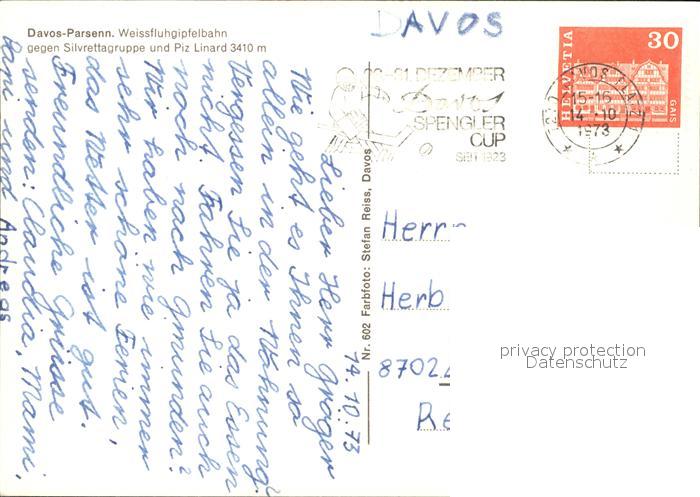 Davos-Parsenn. Weissfluhgipfelbahn
gegen Silvrettagruppe und Piz Linard 3410 m
DAVOS
-31. DEZEMBER
Davos
SPENGLER
CUP
SEIT 1923
HELVETIA
30
GAIS
DAVOS PLATZ
15-15
14-10
1973
14.10.73
Lieber Herr Gröger
Wie geht es Ihnen so
allein in der Wohnung?
Vergessen Sie ja das Essen
nicht. Fahren Sie auch
noch nach Gmunden?
Wir haben wie immer
sehr schöne Ferien,
das Wetter ist gut.
Freundliche Grüsse
senden: Claudia, Mami,
und Andreas
Nr. 602 Farbfoto: Stefan Reiss, Davos
Herr
Herb
8702
Re
privacy protection
Datenschutz